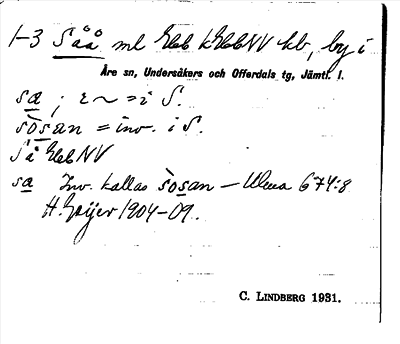 1-3 Såå ml Ebb kEbbNV kb, by i
Åre sn, Undersåkers och Offerdals tg, Jämtl. l.
sa ; ɛ ~ = i S.
sosan = inv. i S.
Så EbbNV
sa Inv. kallas sosan — Ulma 674:8
H. Geijer 1904-09.
C. LINDBERG 1931.